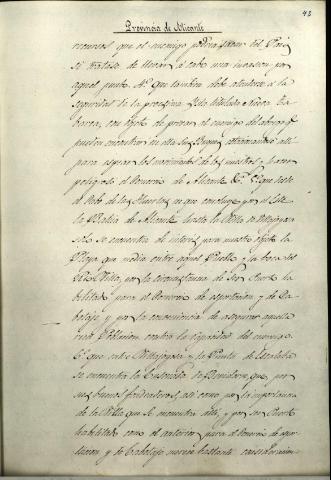 43
Provincia de Alicante
recursos que el enemigo podria sacar del Pais
si tratase de llevar á cabo una invasion por
aquel punto. 4º Que tambien debe atenderse á la
seguridad de la procsima Isla titulada Nueva Ta-
barca, con objeto de privar al enemigo del abrigo q
pueden encontrar en ella sus Buques, situandose alli
para espiar los movimientos de los nuestros, y hacer
peligroso el Comercio de Alicante &ª. 5º que desde
el Cabo de las Huertas en que concluye por el Este
la Bahia de Alicante hasta la Villa de Villajoyosa
solo se encuentra de interés para nuestro objeto la
Playa que media entre aquel Pueblo y la boca del
Rio Villa, por la circunstancia de ser Puerto ha-
bilitado para el Comercio de esportacion y de Ca-
botage y por la conveniencia de asegurar aquella
rica Poblacion contra la rapacidad del enemigo.
6º que entre Villajoyosa y la Punta de
se encuentra la Ensenada de Benidorm, que por
sus buenos fondeaderos, asi como por la importancia
de la Villa que se encuentra alli, y por ser Puerto
habilitado como el anterior para el Comercio de espor-
tacion y de Cabotage merece bastante consideracion